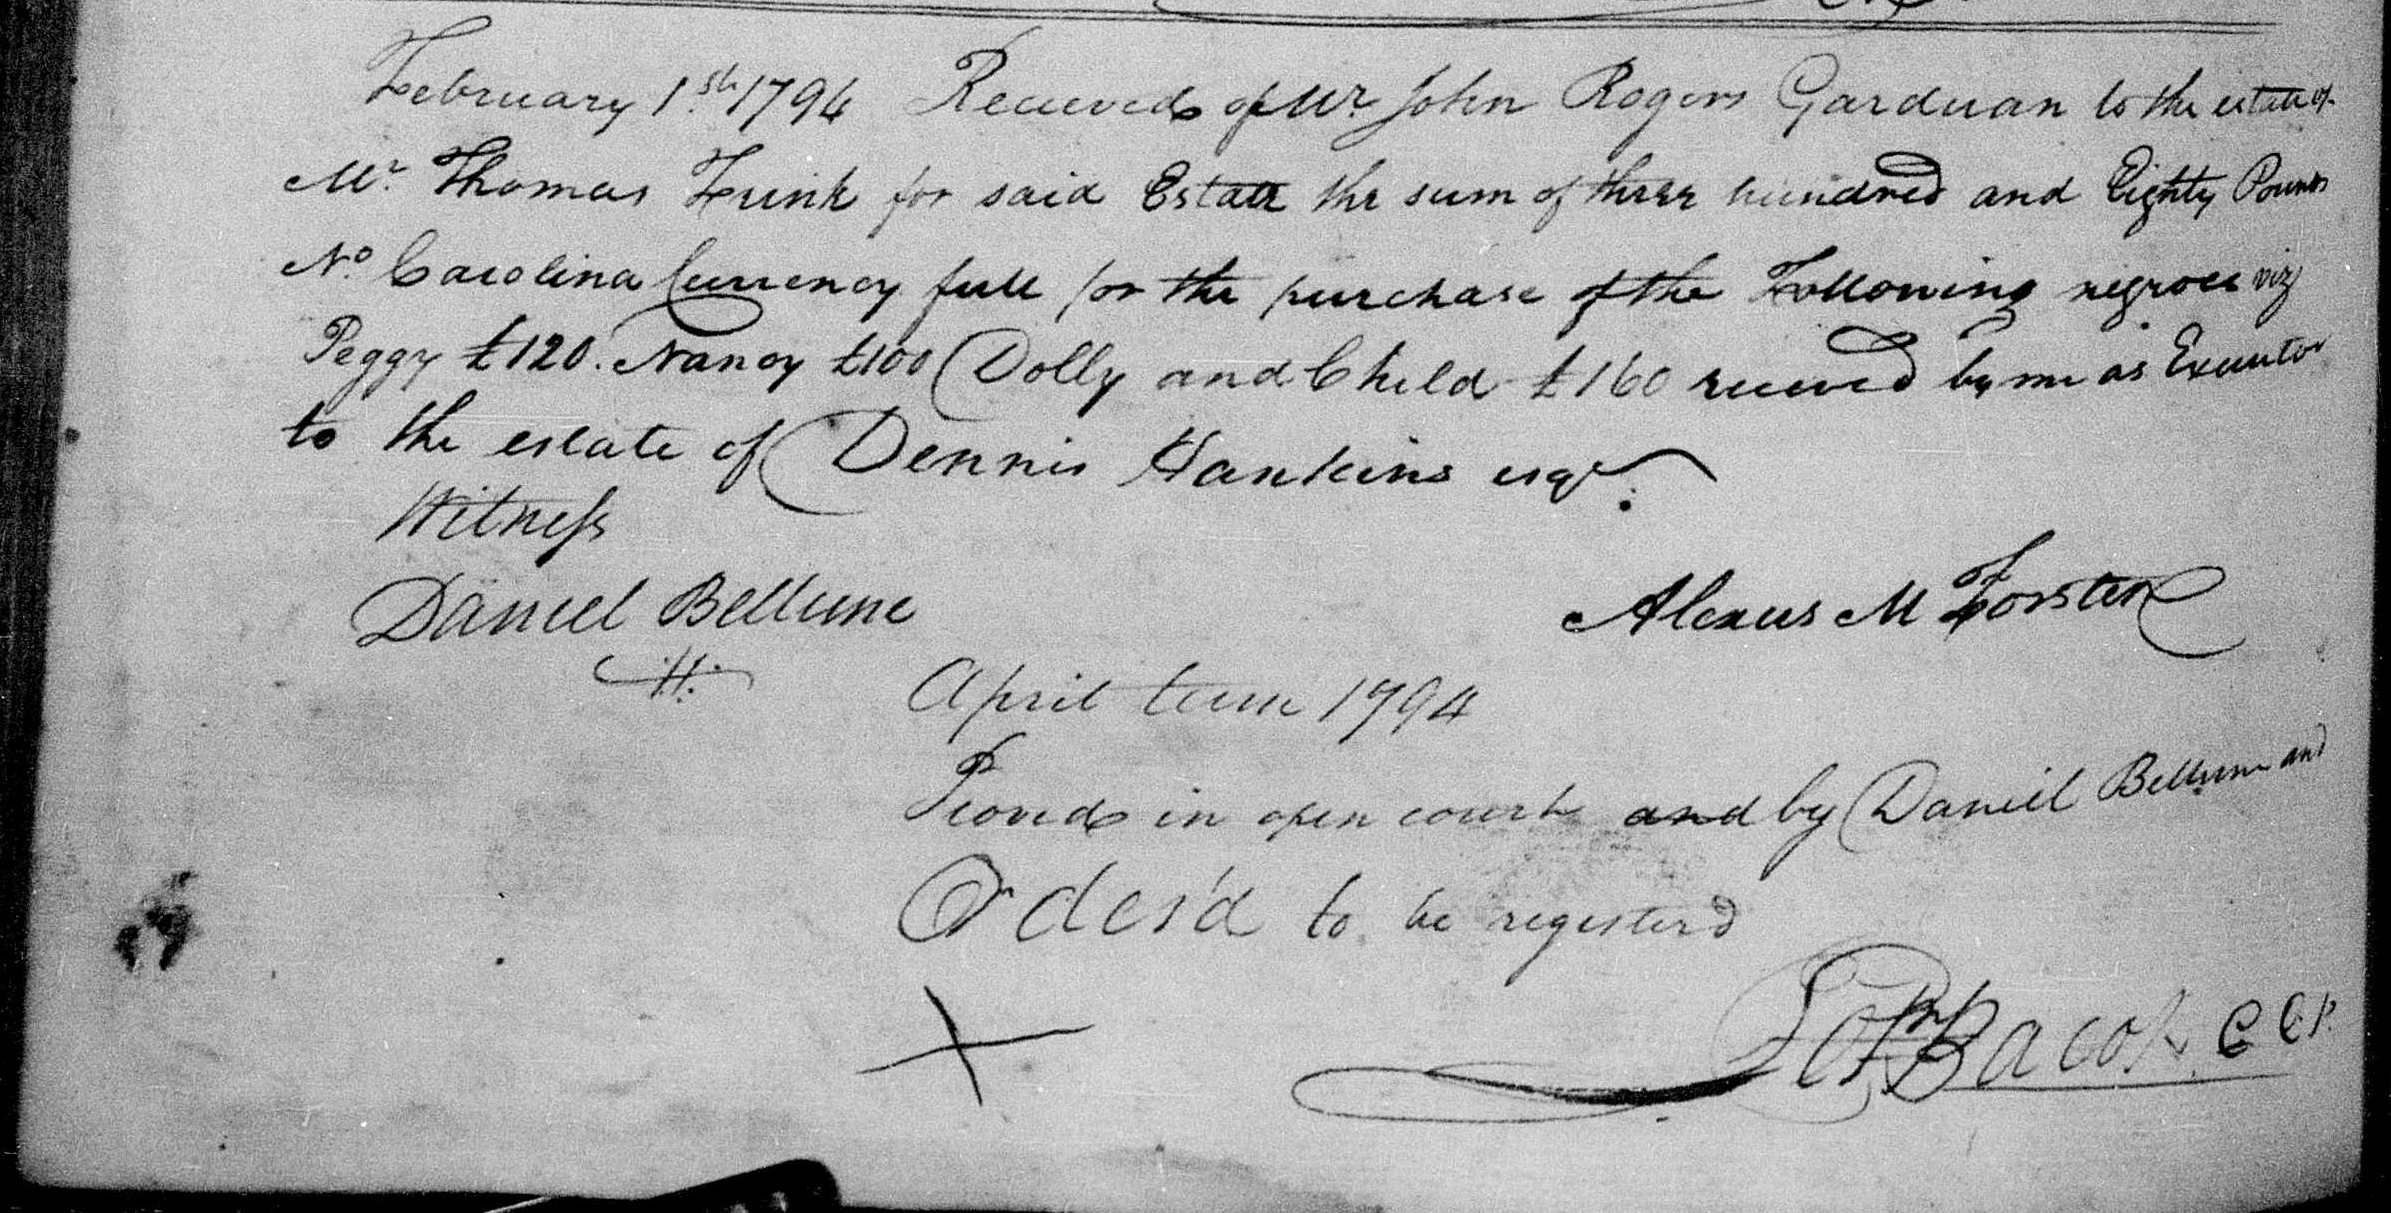 February 1st 1794 Recieved of Mr John Rogers Garduan to the estate of
Mr Thomas Frink for said Estate the sum of three hundred and Eighty Pounds
No Carolina Currency full for the purchase of the Following negroes viz
Peggy £120. Nancy £100 Dolly and Child £160 recieved by me as Executor
to the estate of Dennis Hankins esqr
Witness
Daniel Bellune
Alexus M Forster
April term 1794
Proved in open court and by Daniel Bellune and
Order'd to be register'd
Bacot C C P.